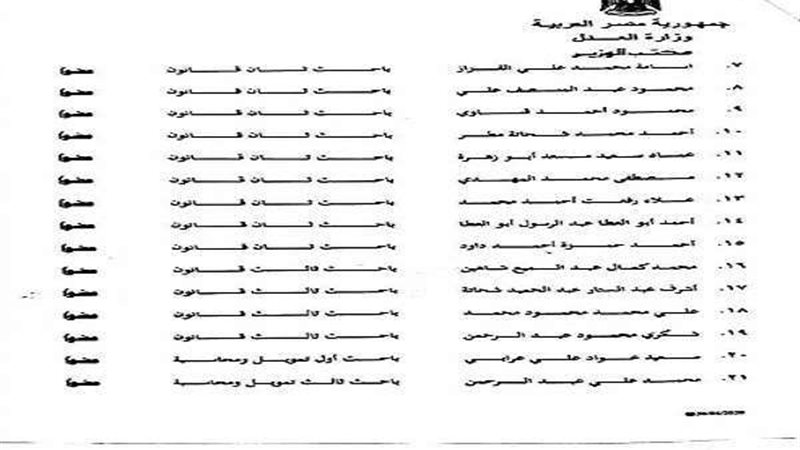 جمهورية مصر العربية
وزارة العدل
مكتب الوزير
٧. اسامة محمد علي القزاز باحث ثان قانون عضوا
٨. محمود عبد المنصف علي باحث ثان قانون عضوا
٩. محمود أحمد قناوي باحث ثان قانون عضوا
١٠. أحمد محمد شحاتة مطر باحث ثان قانون عضوا
١١. عماد سعيد مسعد أبو زهرة باحث ثان قانون عضوا
١٢. مصطفى محمد المهدي باحث ثان قانون عضوا
١٣. علاء رفعت أحمد محمد باحث ثان قانون عضوا
١٤. أحمد أبو العطا عبد الرسول أبو العطا باحث ثان قانون عضوا
١٥. أحمد حمزة أحمد داود باحث ثان قانون عضوا
١٦. محمد كمال عبد السميع شاهين باحث ثالث قانون عضوا
١٧. أشرف عبد الستار عبد الحميد شحاتة باحث ثالث قانون عضوا
١٨. علي محمد محمود محمد باحث ثالث قانون عضوا
١٩. شكري محمود عبد الرحمن باحث ثالث قانون عضوا
٢٠. سعيد عواد علي عرابي باحث أول تمويل ومحاسبة عضوا
٢١. محمد علي عبد الرحمن باحث ثالث تمويل ومحاسبة عضوا